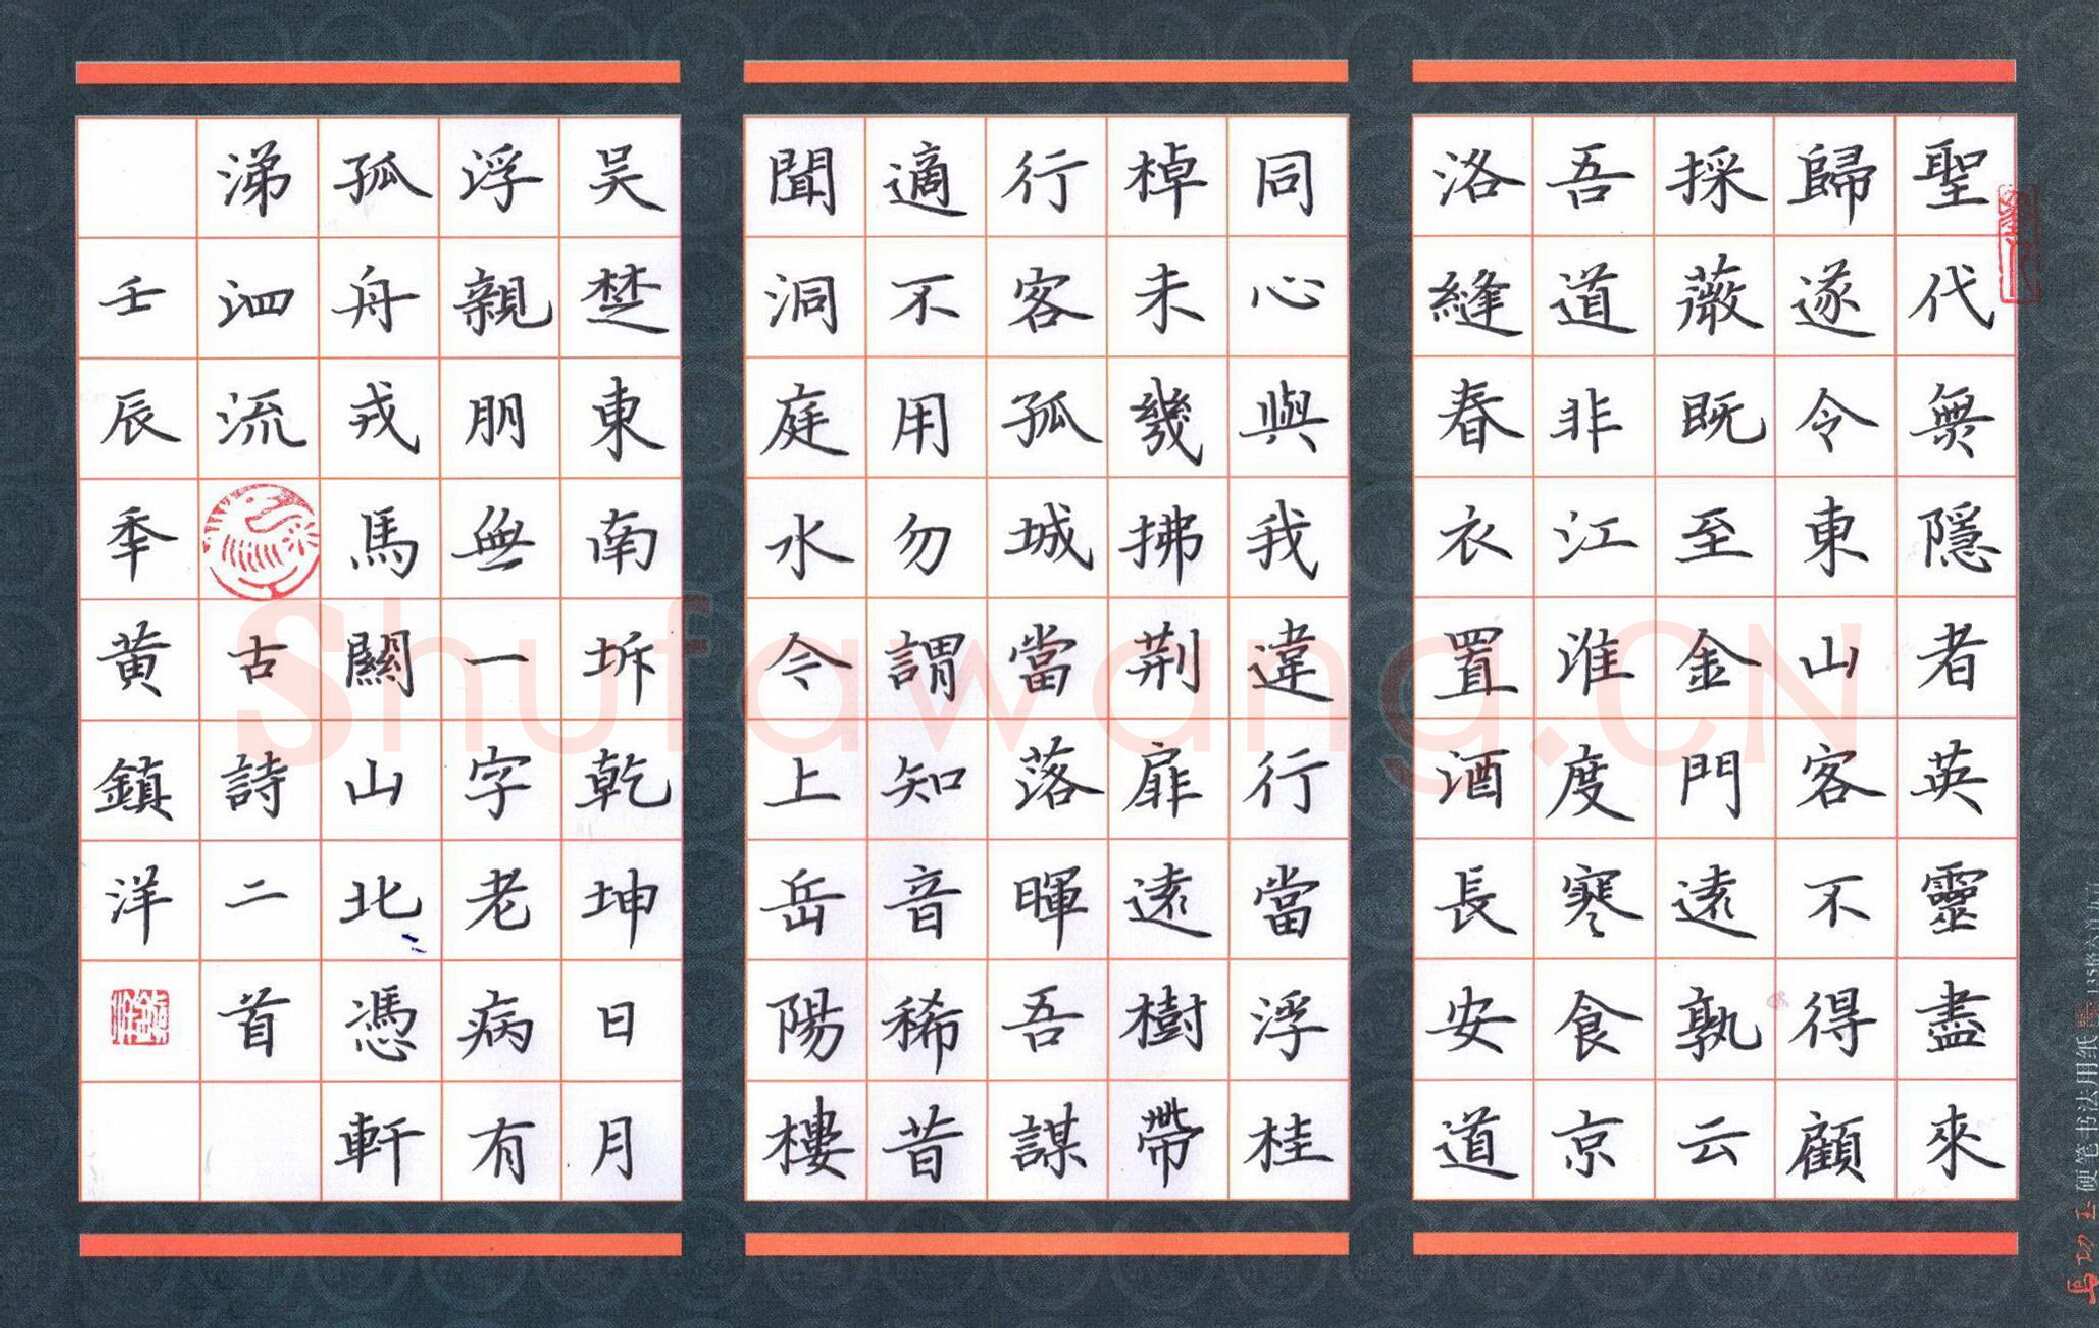 聖代無隱者英靈盡來
歸遂令東山客不得顧
採薇既至金門遠孰云
吾道非江淮度寒食京
洛縫春衣置酒長安道
同心與我違行當浮桂
棹未幾拂荆扉遠樹帶
行客孤城當落暉吾謀
適不用勿謂知音稀昔
聞洞庭水今上岳陽樓
吳楚東南坼乾坤日月
浮親朋無一字老病有
孤舟戎馬關山北憑軒
涕泗流
古詩二首
壬辰年黄鎮洋
Shufawang.CN
硬笔书法用纸